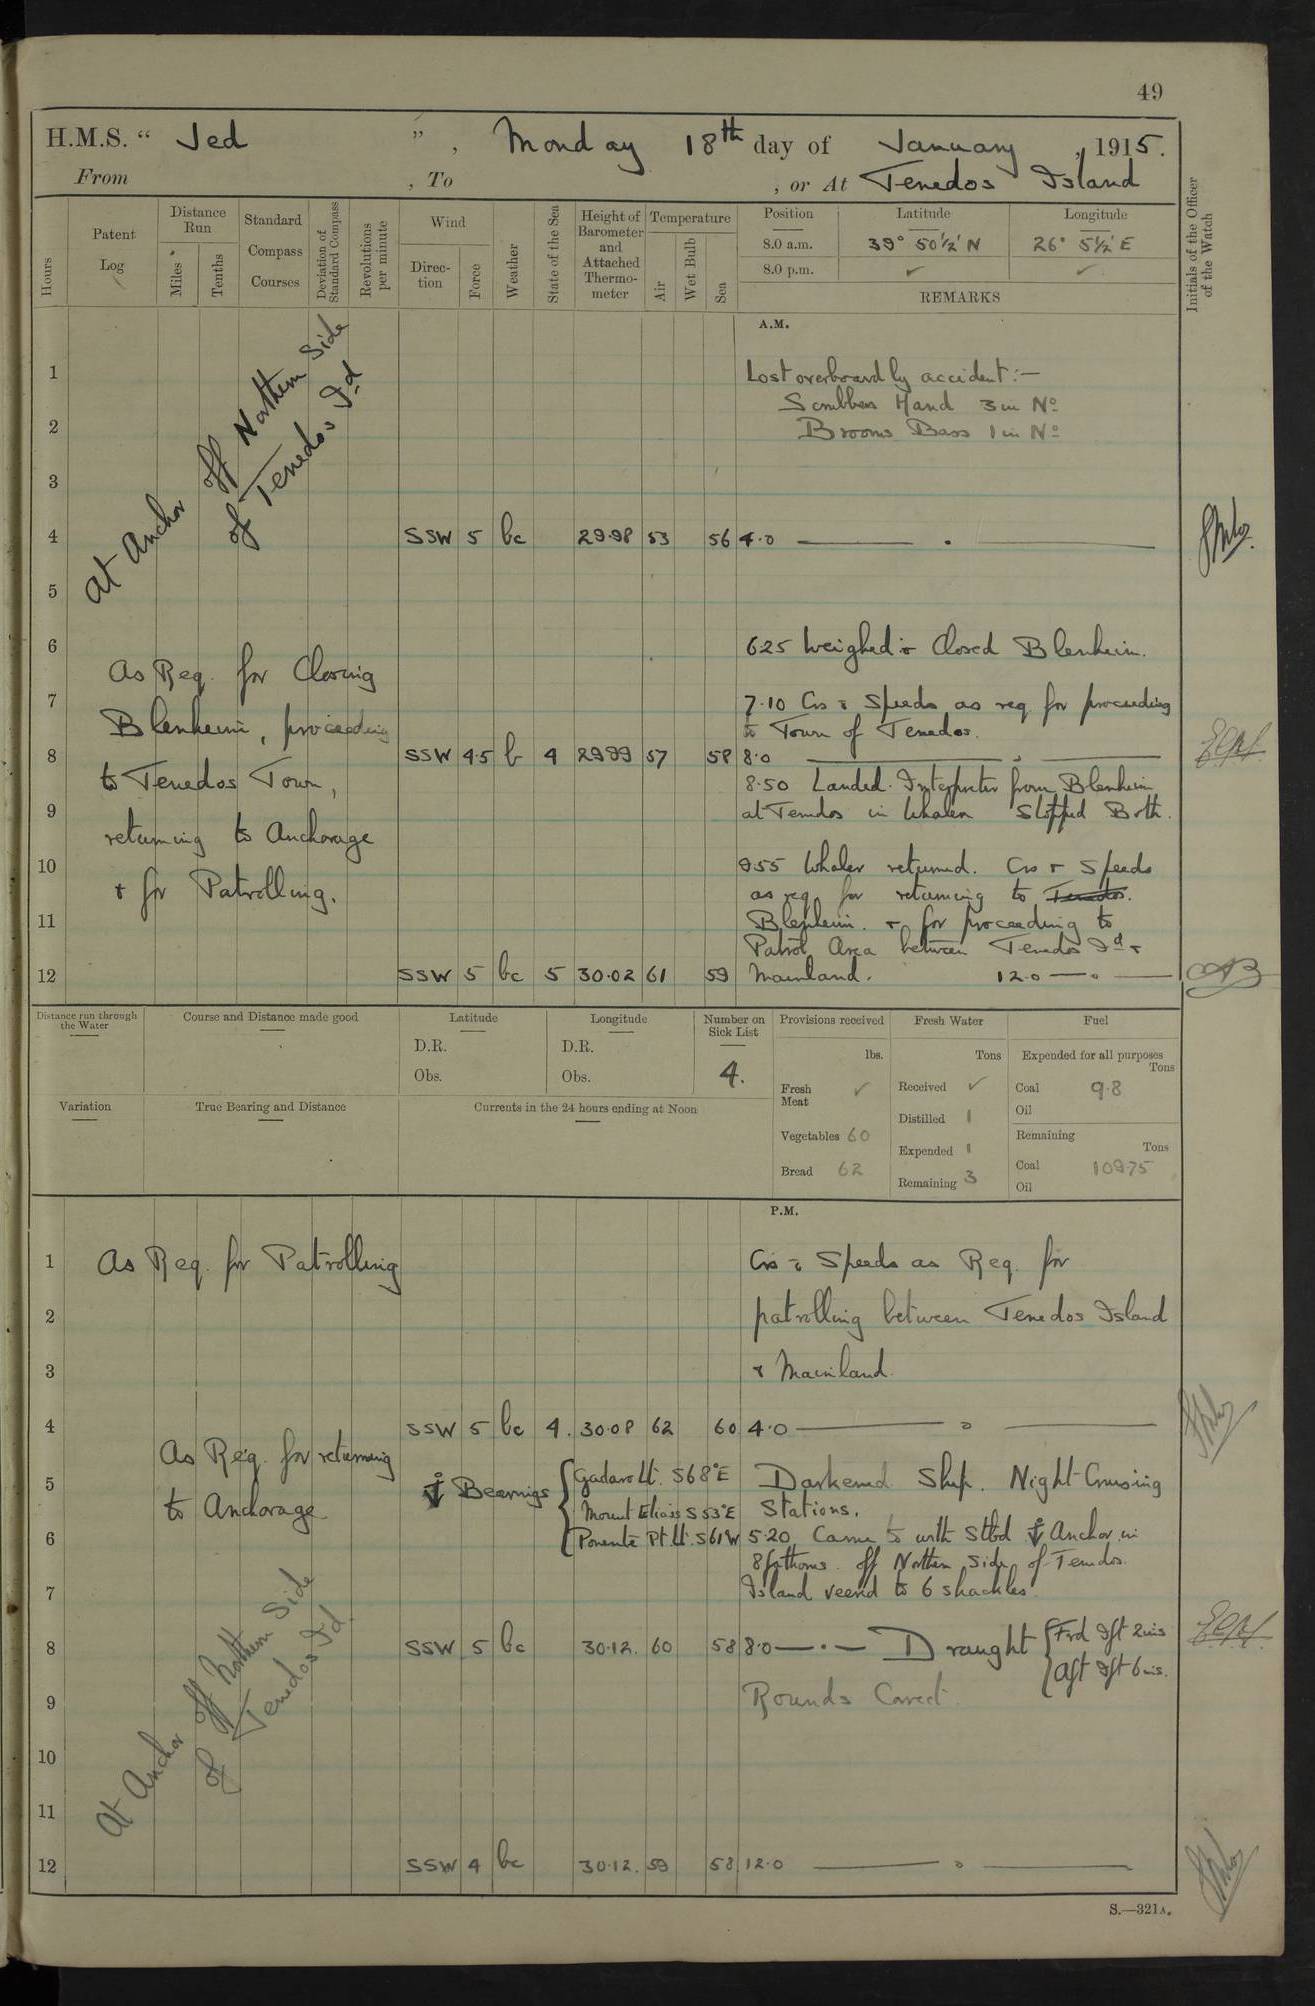 49
H.M.S. " Jed ", Monday 18th day of January, 1915.
From , To , or At Tenedos Island
Hours
Patent Log
Distance Run
Miles
Tenths
Standard Compass Courses
Deviation of Standard Compass
Revolutions per minute
Wind
Direction
Force
Weather
State of the Sea
Height of Barometer and Attached Thermometer
Temperature
Air
Wet Bulb
Sea
Position Latitude Longitude
8.0 a.m. 39° 50½' N 26° 5½' E
8.0 p.m. ✓ ✓
REMARKS
Initials of the Officer of the Watch
A.M.
At Anchor off Northern Side
of Tenedos Id
1 Lost overboard by accident:—
Scrubbers Hand 3 in No
2 Brooms Bass 1 in No
3
4 SSW 5 bc 29.98 53 56 4.0
5
6 6.25 Weighed & Closed Blenheim.
As Req. for Closing
7 7.10 Cos & Speeds as req for proceeding
Blenheim, proceeding to Town of Tenedos.
8 SSW 4.5 b 4 29.99 57 58 8.0
to Tenedos Town, 8.50 Landed Interpreter from Blenheim
9 at Tenedos in Whaler Stopped Both.
returning to Anchorage
10 9.55 Whaler returned. Cos & Speeds
& for Patrolling. as req. for returning to Tenedos.
11 Blenheim. & for proceeding to
Patrol Area between Tenedos Id &
12 SSW 5 bc 5 30.02 61 59 Mainland. 12.0
Distance run through the Water
Course and Distance made good
Latitude
D.R.
Obs.
Longitude
D.R.
Obs.
Number on Sick List
4.
Provisions received
lbs.
Fresh Meat ✓
Vegetables 60
Bread 62
Fresh Water
Tons
Received ✓
Distilled 1
Expended 1
Remaining 3
Fuel
Expended for all purposes
Tons
Coal 9.8
Oil
Remaining
Tons
Coal 109.75
Oil
Variation
True Bearing and Distance
Currents in the 24 hours ending at Noon
P.M.
1 As Req. for Patrolling Cos & Speeds as Req. for
2 patrolling between Tenedos Island
3 & Mainland.
4 SSW 5 bc 4. 30.08 62 60 4.0
As Req. for returning
5 ⚓ Bearings { Gadaro Lt. S68°E Darkened Ship. Night Cruising
to Anchorage Mount Elias S53°E Stations.
6 Ponente Pt Lt. S61W 5.20 Came to with Stbd ⚓ Anchor in
8 fathoms off Northern Side of Tenedos
7 Island veered to 6 shackles.
8 SSW 5 bc 30.12. 60 58 8.0 Draught { Fwd 9ft 2ins
Aft 9ft 6ins.
9 Rounds Correct.
At Anchor off Northern Side
of Tenedos Id.
10
11
12 SSW 4 bc 30.12. 59 58 12.0
S.—321A.